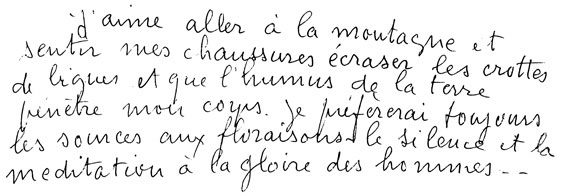 j'aime aller à la montagne et
sentir mes chaussures écraser les crottes
de biques et que l'humus de la terre
pénètre mon corps. je préfererai toujours
les sources aux floraisons - le silence et la
meditation à la gloire des hommes - -